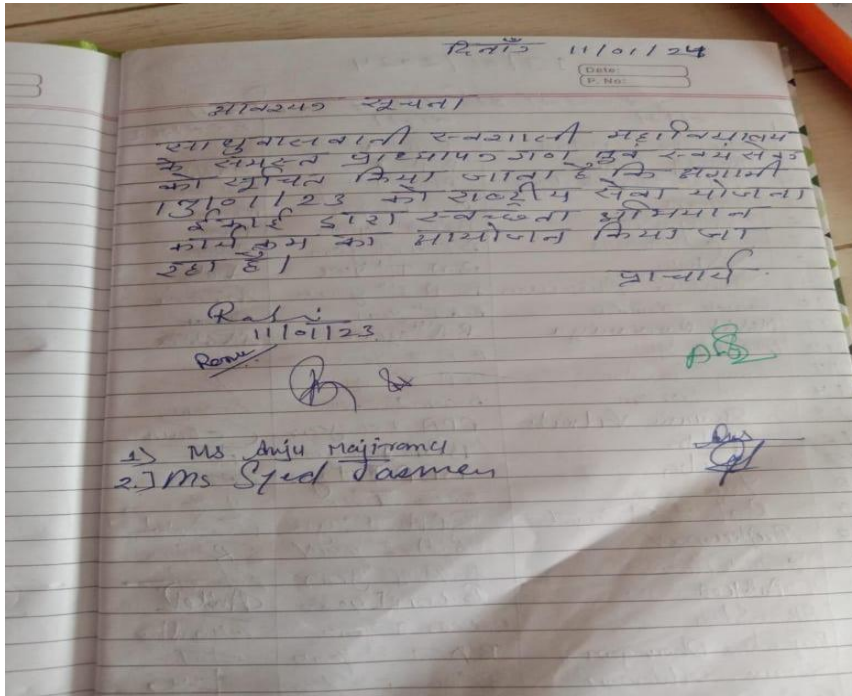 दिनाँक 11/01/24
Date:
P. No:
आवश्यक सूचना
साधु वासवानी स्वशासी महाविद्यालय
के समस्त प्राध्यापक गण एवं स्वयं सेवक
को सूचित किया जाता है कि आगामी
13/01/23 को राष्ट्रीय सेवा योजना
ईकाई द्वारा स्वच्छता अभियान
कार्यक्रम का आयोजन किया जा
रहा है।
प्राचार्य
11/01/23
1) Ms Anju
2.] Ms Syed Jasmen